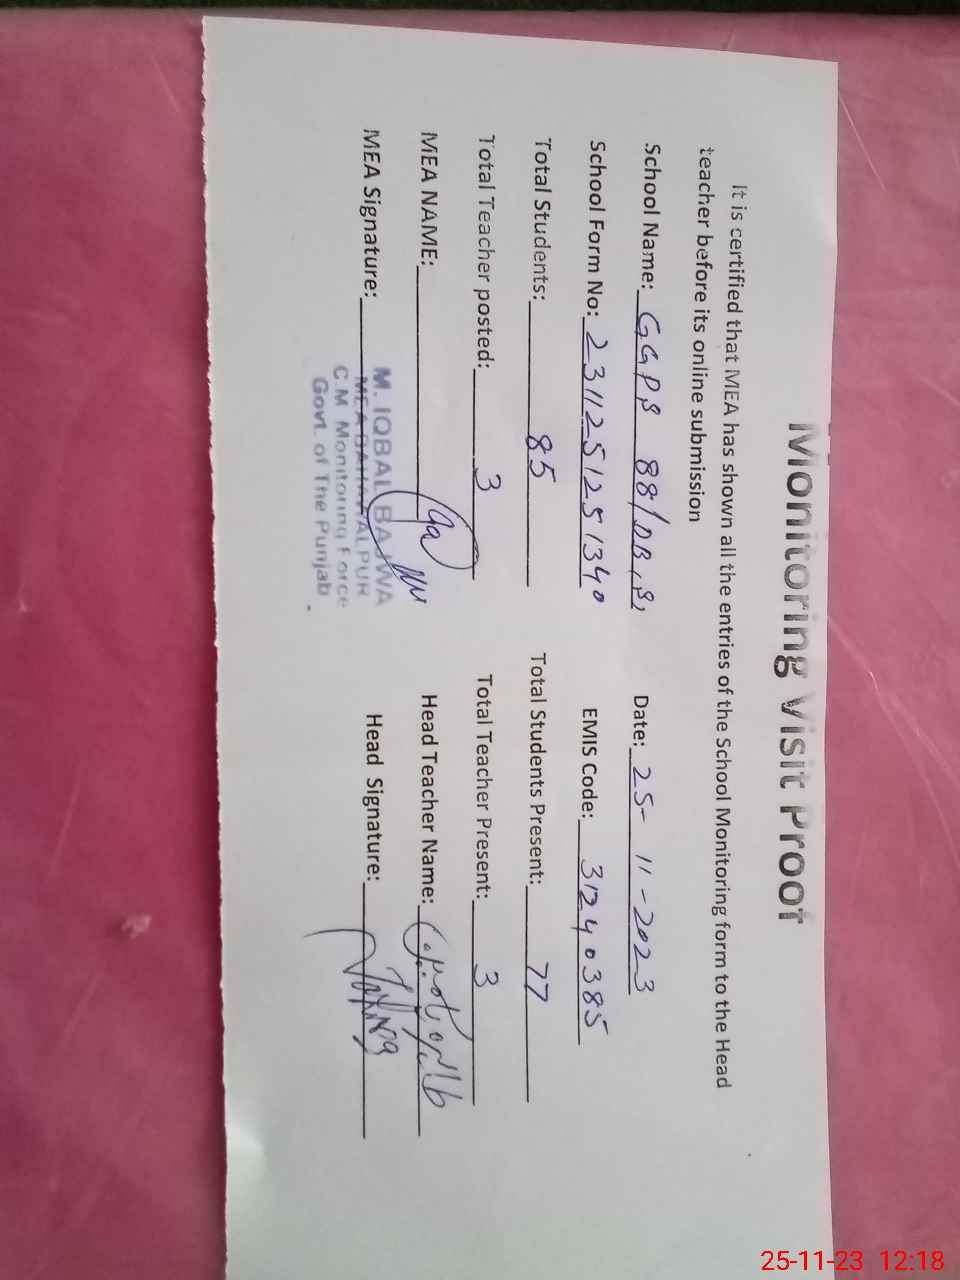 Monitoring Visit Proof
It is certified that MEA has shown all the entries of the School Monitoring form to the Head
teacher before its online submission
School Name: GGPS 88/DB,S, Date: 25-11-2023
School Form No: 2311251251340 EMIS Code: 31240385
Total Students: 85 Total Students Present: 77
Total Teacher posted: 3 Total Teacher Present: 3
MEA NAME: Head Teacher Name:
MEA Signature: Head Signature:
M. IQBAL BAJWA
MEA BAHAWALPUR
C.M Monitoring Force
Govt. of The Punjab
25-11-23 12:18